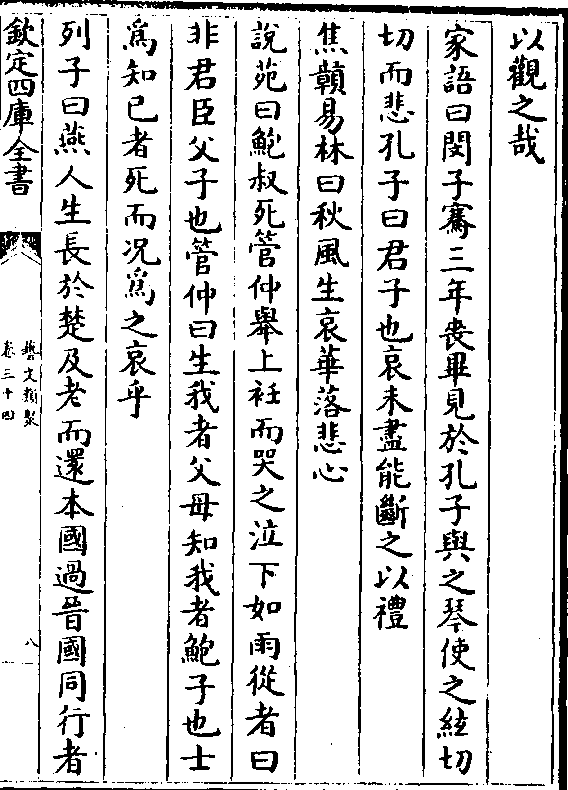 以觀之哉
家語曰閔子騫三年喪畢見於孔子與之琴使之絃切
切而悲孔子曰君子也哀未盡能斷之以禮
焦贑易林曰秋風生哀華落悲心
說苑曰鮑叔死管仲舉上衽而哭之泣下如雨從者曰
非君臣父子也管仲曰生我者父母知我者鮑子也士
爲知已者死而况爲之哀乎
列子曰燕人生長於楚及老而還本國過晉國同行者
欽定四庫全書
藝文類聚
卷三十四
八